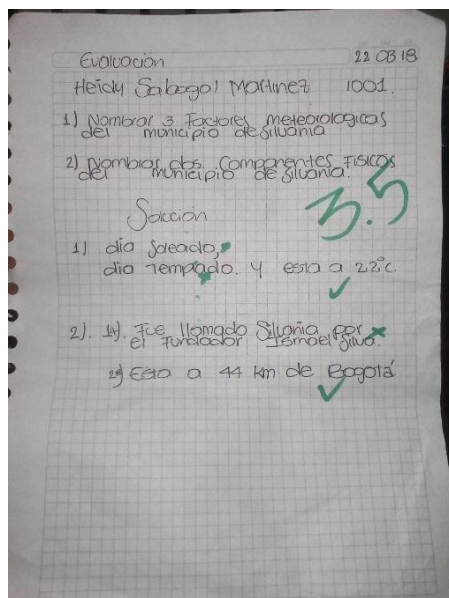 Evaluación 22 03 18
Heidy Sabogal Martinez 1001.
1) Nombrar 3 Factores meteorologicas
del municipio de silvania
2) Nombrar dos Componentes Fisicos
del municipio de silvania.
3.5
Solución
1) dia soleado,
dia Templado. y esta a 22°c.
2). 1). Fue llamado Silvania por
el Fundador Ismael Silva.
2) Esta a 44 km de Bogotá